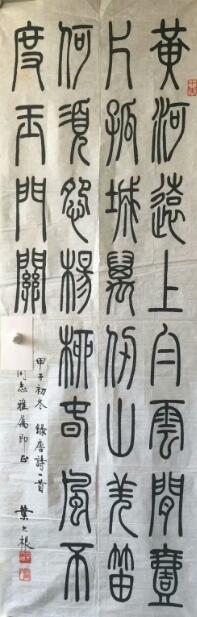 黃河遠上白雲間壹
片孤城萬仞山羌笛
何須怨楊柳春風不
度玉門關
甲子初冬 錄唐詩一首
同志雅屬即正
葉 根